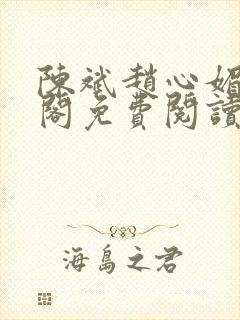 陳斌趙心媚
閣免費閱讀
海島之君